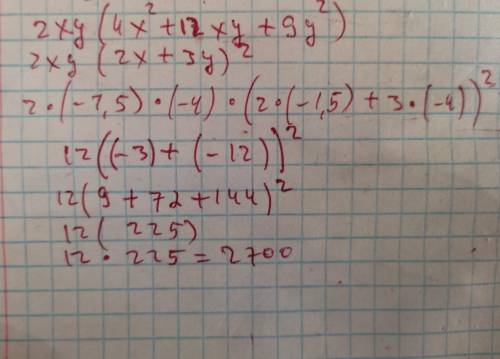 2xy(4x²+12xy+9y²)
2xy(2x+3y)²
2·(-1,5)·(-4)·(2·(-1,5)+3·(-4))²
12((-3)+(-12))²
12(9+72+144)²
12(225)
12·225=2700